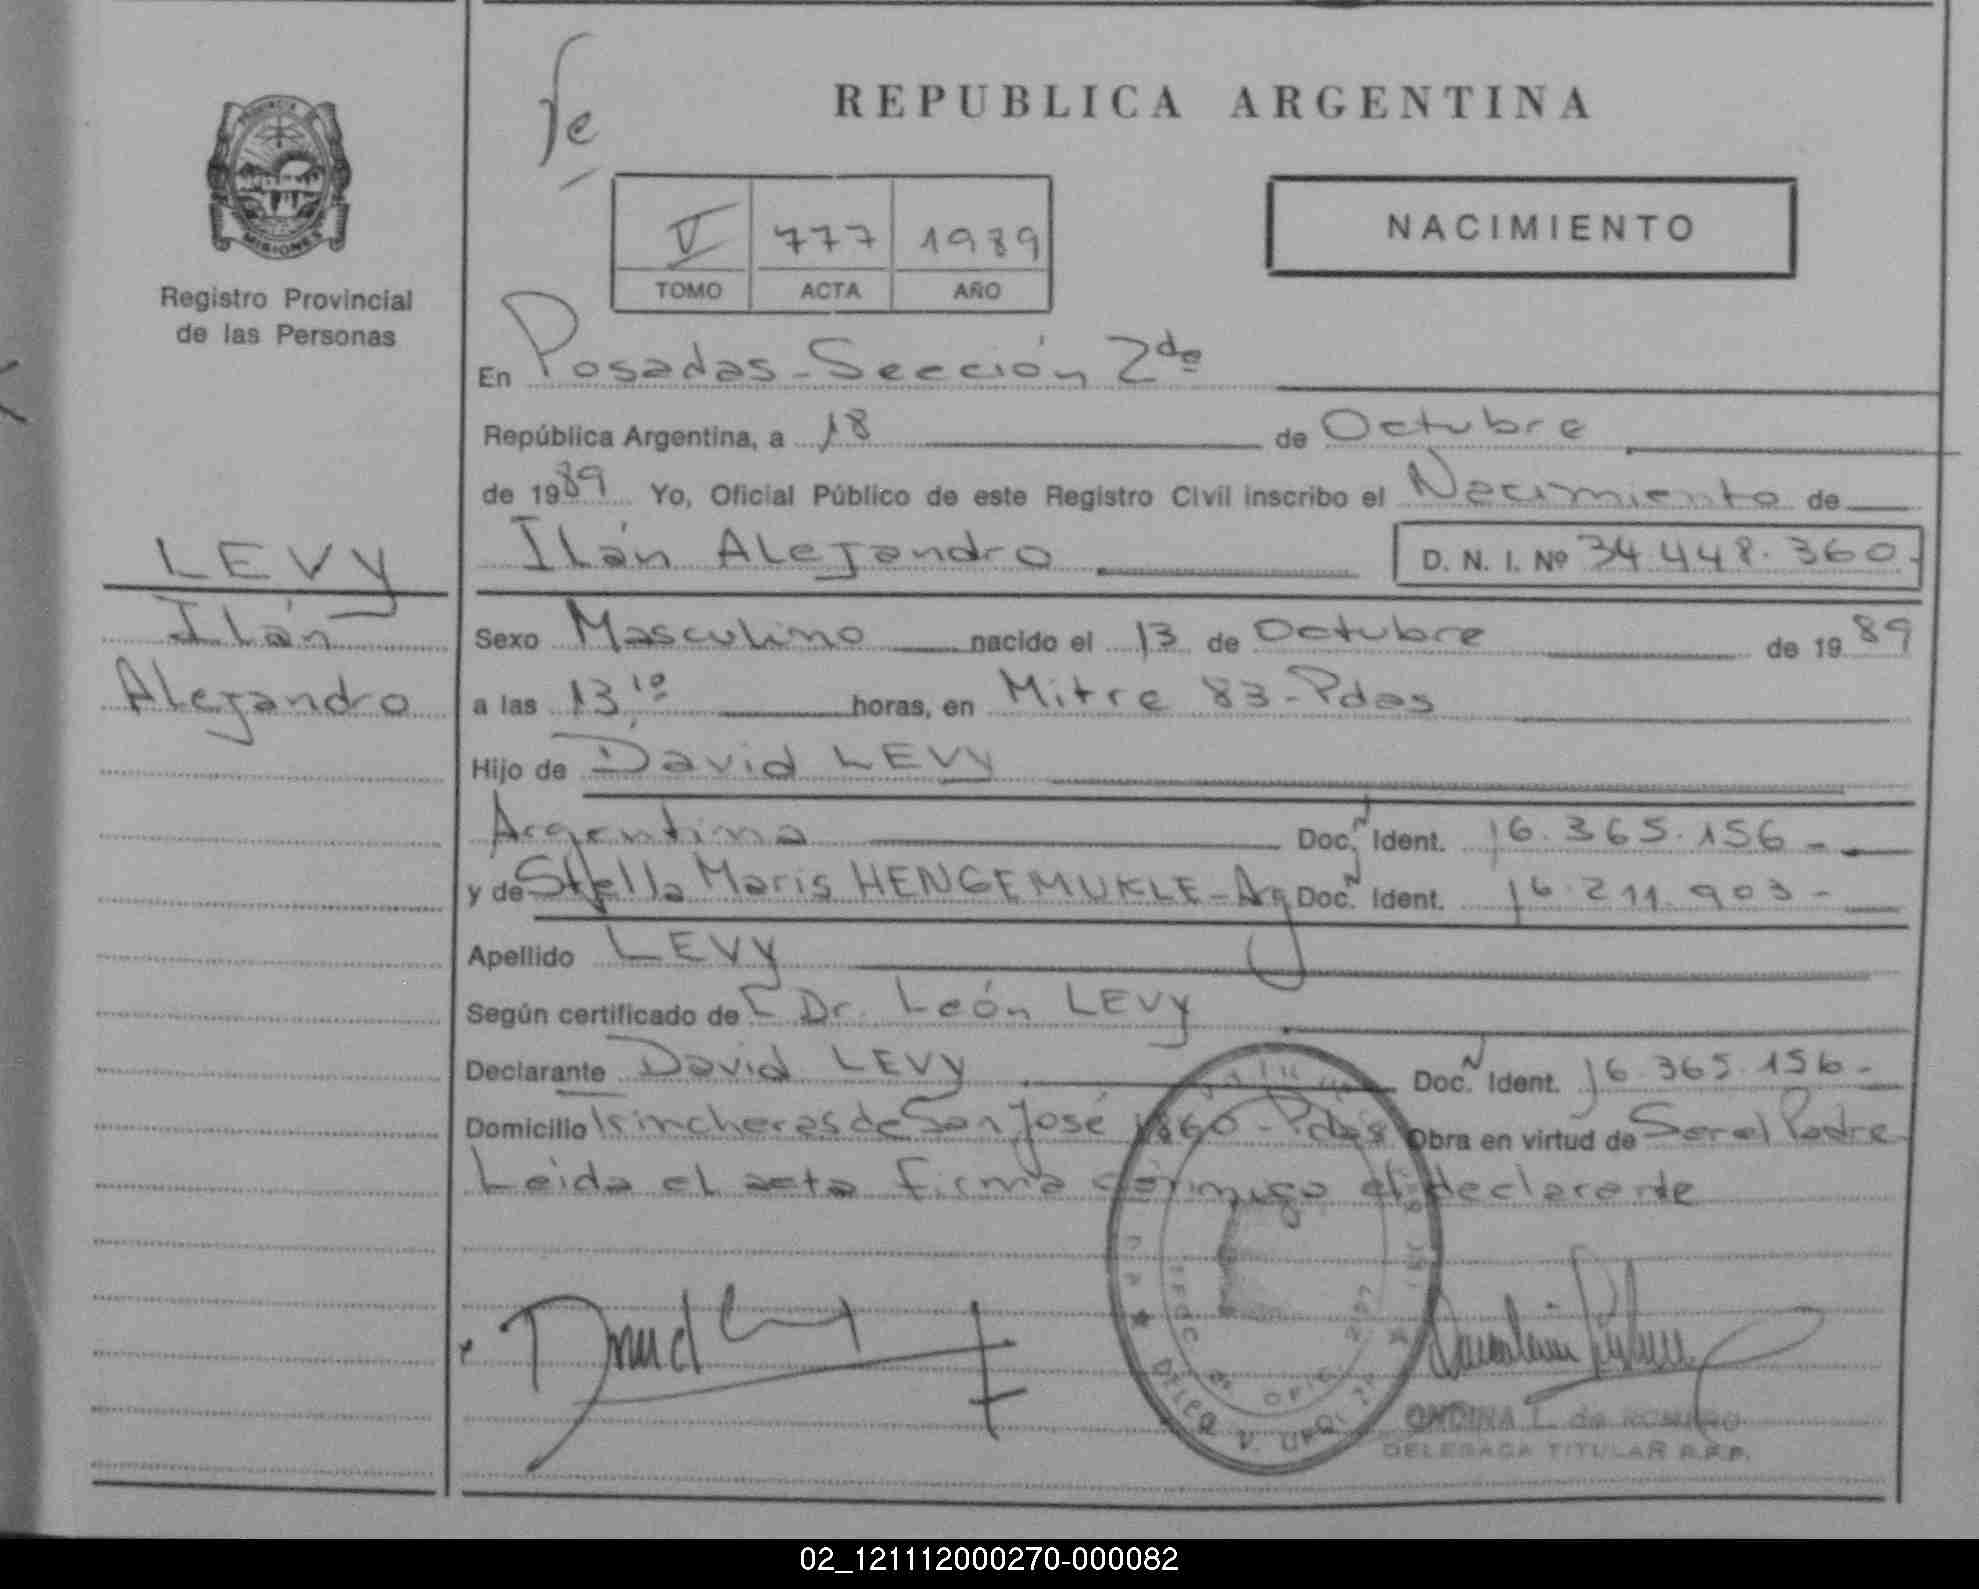 REPUBLICA ARGENTINA
PROVINCIA
MISIONES
Registro Provincial
de las Personas
NACIMIENTO
V 777 1989
TOMO ACTA AÑO
En Posadas-Sección 2da
República Argentina, a 18 de Octubre
de 1989 Yo, Oficial Público de este Registro Civil inscribo el Nacimiento de
Ilán Alejandro D. N. I. Nº 34.448.360-
LEVY
Ilán
Alejandro
Sexo Masculino nacido el 13 de Octubre de 1989
a las 13,10 horas, en Mitre 83-Pdas
Hijo de David LEVY
Argentina Doc. Ident. 16.365.156-
y de Stella Maris HENGEMUKLE-Ag Doc. Ident. 16.211.903-
Apellido LEVY
Según certificado de Dr. León LEVY
Declarante David LEVY Doc. Ident. 16.365.156-
Domicilio de San José 1860-Pdas Obra en virtud de Ser el Padre
Leida el acta firma conmigo el declarante
David Levy
ONDINA L. de ROMERO
DELEGADA TITULAR R.P.P.
02_121112000270-000082